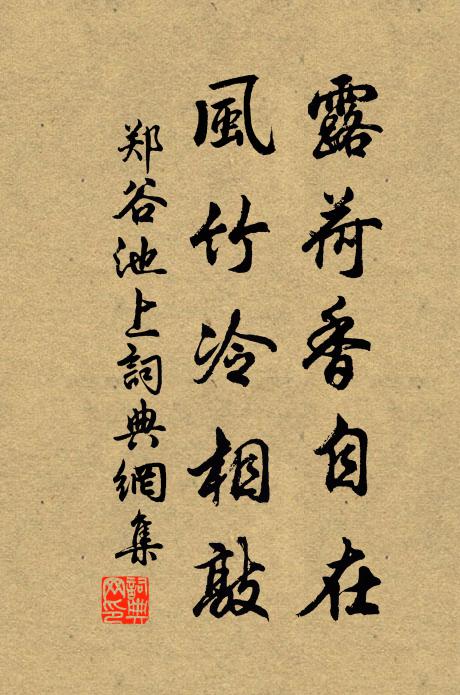 露荷香自在
風竹冷相敲
郑谷池上詞典網集
詞典网印